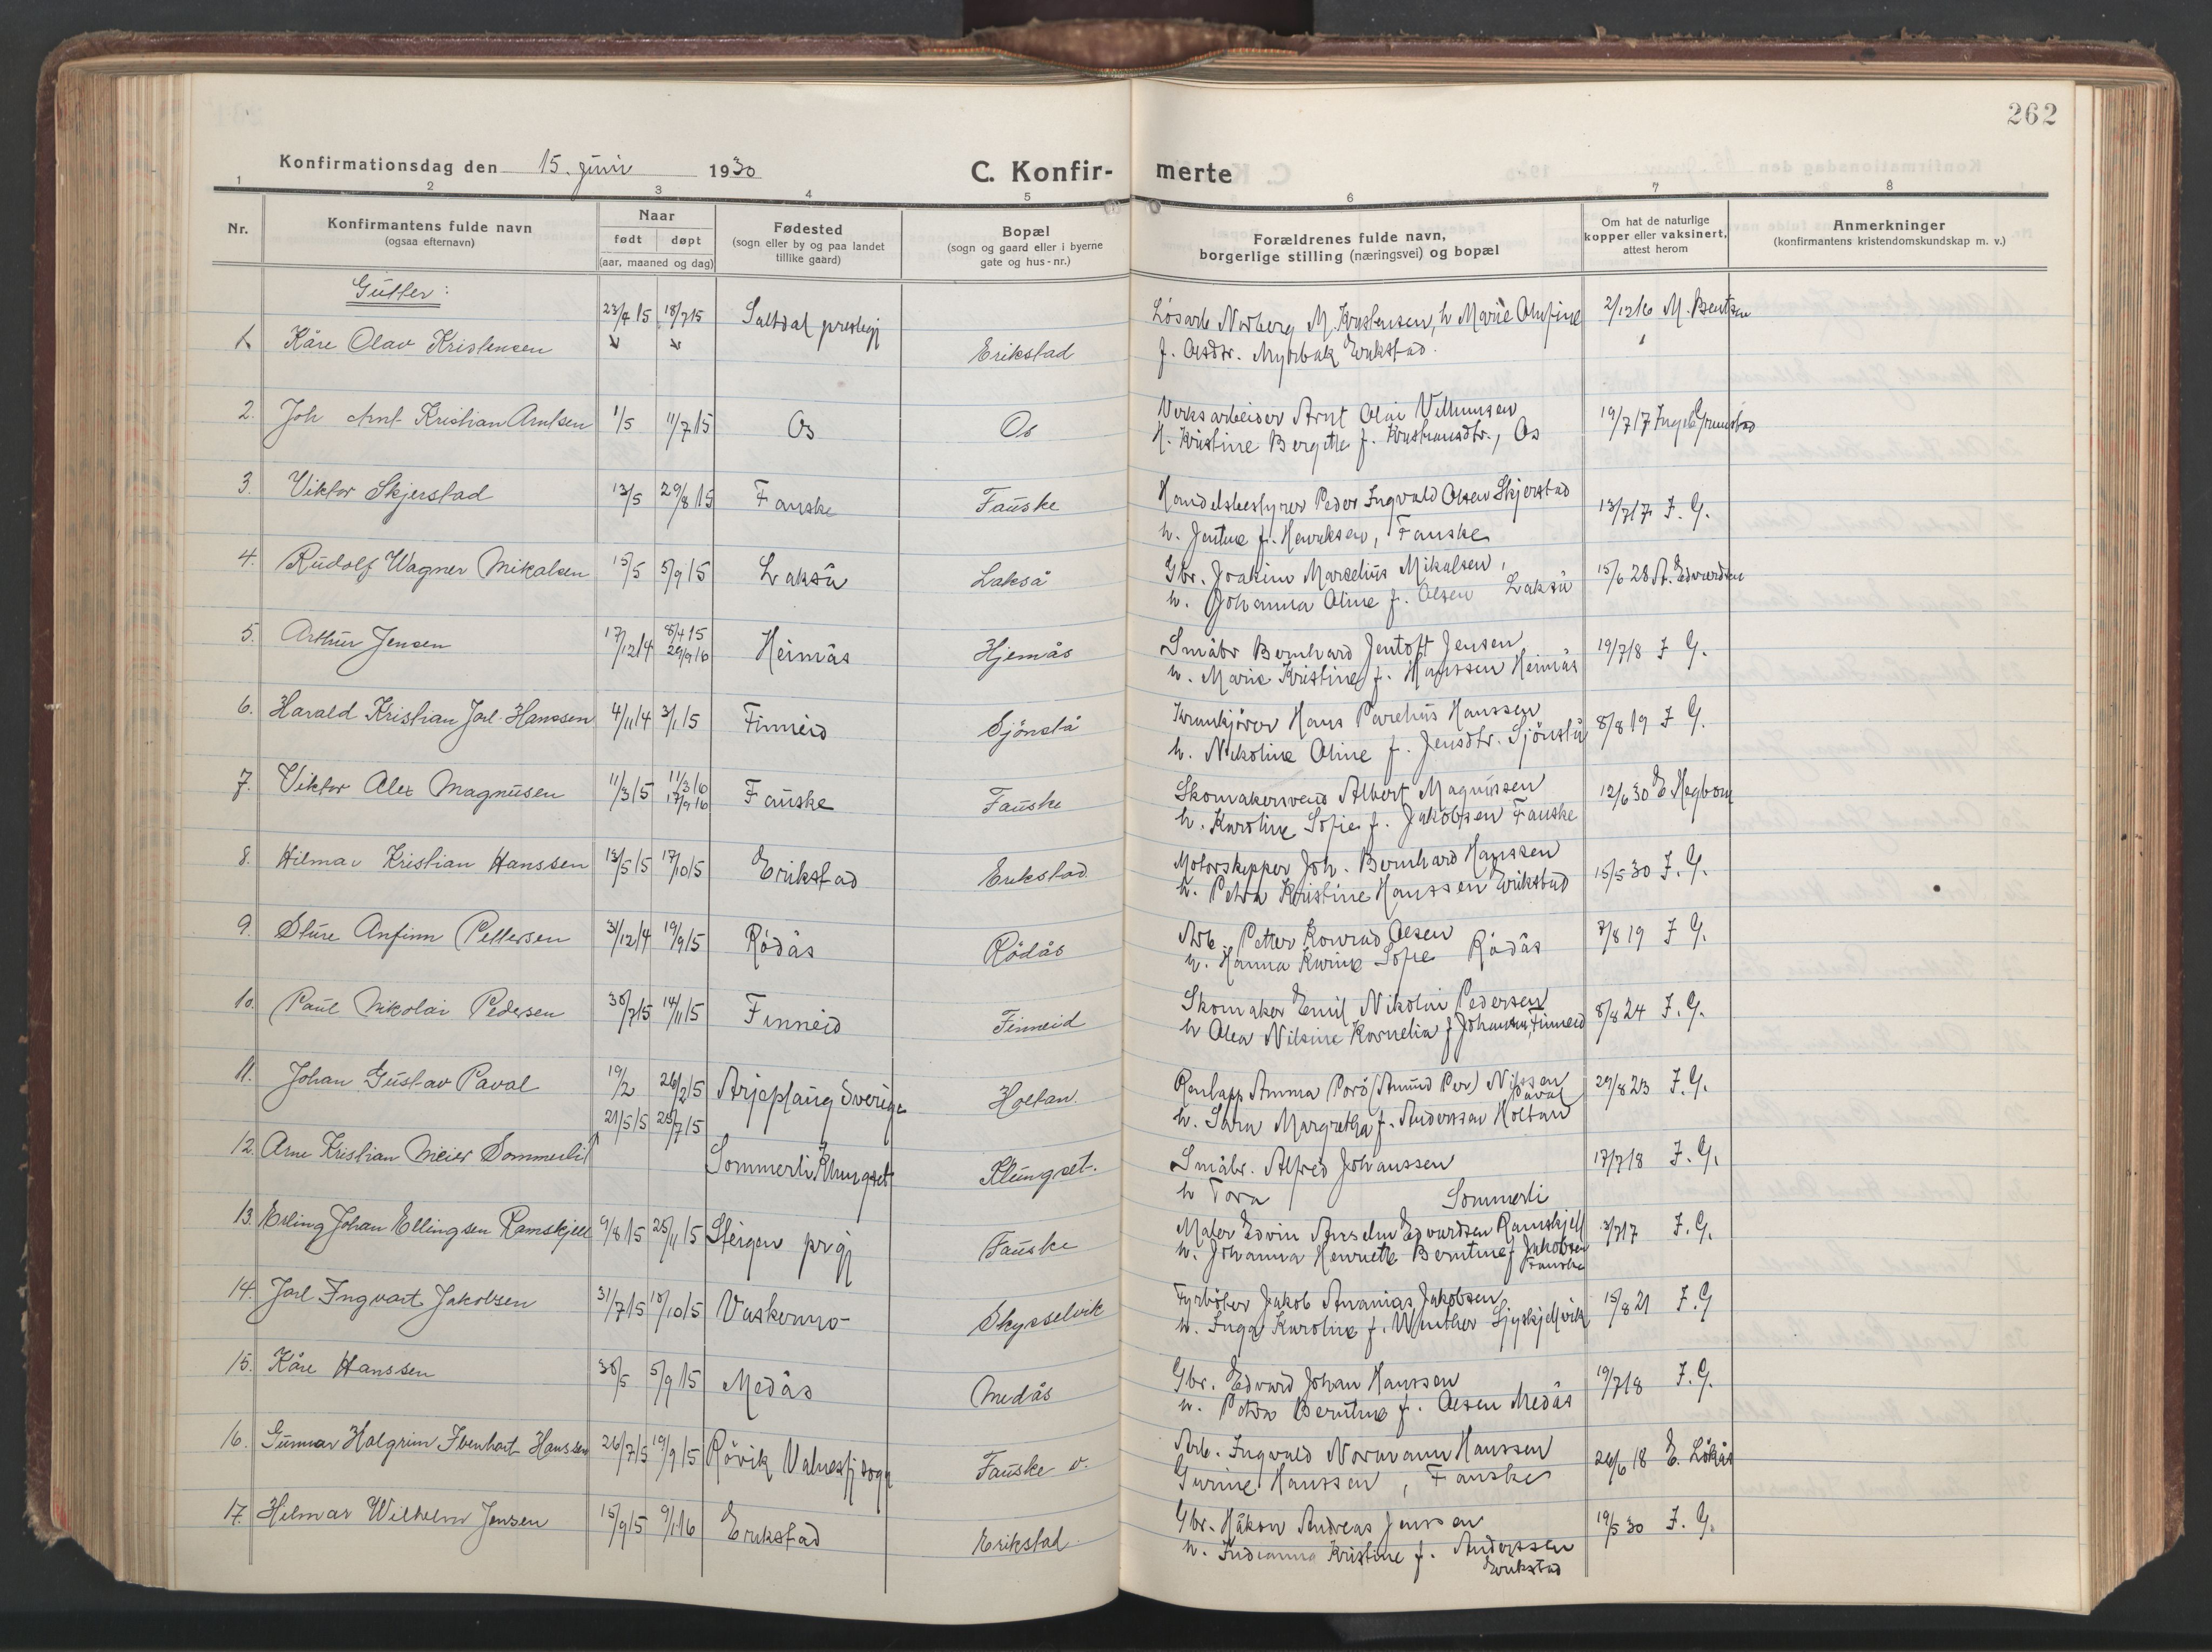 262
Konfirmationsdag den 15. juni 1930
C. Konfir-
merte
1 2 3 4 5 6 7 8
Nr.
Konfirmantens fulde navn
(ogsaa efternavn)
Naar
født døpt
(aar, maaned og dag)
Fødested
(sogn eller by og paa landet
tillike gaard)
Bopæl
(sogn og gaard eller i byerne
gate og hus-nr.)
Forældrenes fulde navn,
borgerlige stilling (næringsvei) og bopæl
Om hat de naturlige
kopper eller vaksinert,
attest herom
Anmerkninger
(konfirmantens kristendomskundskap m. v.)
Gutter:
1. Kåre Olav Kristensen 23/4 15 18/7 15 Saltdal prestegj Erikstad Løsarb Norberg M. Kristensen, h Marie Olufine 2/12 16 M. Bentsen
f. Olsdtr. Myrbak Erikstad.
2. Joh Arnt Kristian Arntsen 1/5 11/7 15 Os Os Verksarbeider Arnt Olai Villumsen 19/7 17
H. Kristine Bergitte f. Kristiansdtr., Os
3. Viktor Skjerstad 13/5 29/8 15 Fauske Fauske Handelsbestyrer Peder Ingvald Olsen Skjerstad 13/7 17 I. G.
h. Jentine f. Henriksen, Fauske
4. Rudolf Wagner Mikalsen 15/5 5/9 15 Lakså Lakså Gbr. Joakim Marselius Mikalsen, 15/6 28 A. Edvardsen
h. Johanna Oline f. Olsen Lakså
5. Arthur Jensen 17/12 14 8/4 15 29/9 16 Heimås Hjemås Småbr Bernhard Jentoft Jensen 19/7 18 I G.
h. Marie Kristine f. Hanssen Heimås
6. Harald Kristian Jarl Hanssen 4/11 14 3/1 15 Finneid Sjönstå Krankjörer Hans Parelius Hanssen 8/8 19 I G.
h. Nikoline Oline f. Jensdtr. Sjönstå
7. Viktor Alex Magnusen 11/3 15 11/3 16 17/9 16 Fauske Fauske Skomakersvend Albert Magnussen 12/6 30 E Hegbom
h. Karoline Sofie f. Jakobsen Fauske
8. Hilmar Kristian Hanssen 13/5 15 17/10 15 Erikstad Erikstad Motorskipper Joh. Bernhard Hanssen 15/5 30 I. G.
h. Petra Kristine Hanssen Erikstad
9. Sture Anfinn Pettersen 31/12 14 19/9 15 Rödås Rödås Arb. Petter Konrad Olsen 7/8 19 I G.
h. Hanna Karine Sofie Rödås
10. Paul Nikolai Pedersen 30/7 15 14/11 15 Finneid Finneid Skomaker Emil Nikolai Pedersen 8/8 24 I. G.
h Olea Nilsine Kornelia f Johansen, Finneid
11. Johan Gustav Paval 19/2 26/2 15 Arjeplaug Sverige Holtan. Renlapp Amma Porö (Amund Per) Nilssen Paval 29/8 23 I. G.
h. Sara Margretha f. Anderssen Holtan
12. Arne Kristian Meier Sommerli 21/5 15 25/7 15 Sommerli Klungset Klungset. Småbr. Alfred Johanssen 17/7 18 I. G.
h Tora Sommerli
13. Erling Johan Ellingsen Ramskjell 9/8 15 25/11 15 Steigen prgj Fauske Maler Edvin Anselm Edvardsen Ramskjell 3/7 17 I. G.
h. Johanna Henriette Berntine f Jakobsen Fauske
14. Jarl Ingvart Jakobsen 31/7 15 18/10 15 Vaskermo Skysselvik Fyrböter Jakob Ananias Jakobsen 15/8 21 I. G
h. Inga Karoline f. Winther Sjyskjelvik
15. Kåre Hanssen 30/5 5/9 15 Medås Medås Gbr. Edvard Johan Hanssen 19/7 18 I. G.
h. Petra Berntine f. Olsen Medås
16. Gunnar Halgrim Ibenhart Hanssen 26/7 15 19/9 15 Rövik Valnesfj sogn Fauske v. Arb. Ingvald Normann Hanssen 26/6 18 E. Lökås
Gurine Hanssen, Fauske
17. Hilmar Wilhelm Jensen 15/9 15 9/1 16 Erikstad Erikstad. Gbr. Håkon Andreas Jenssen 19/5 30 I. G.
h. Indianna Kristine f. Anderssen
Erikstad